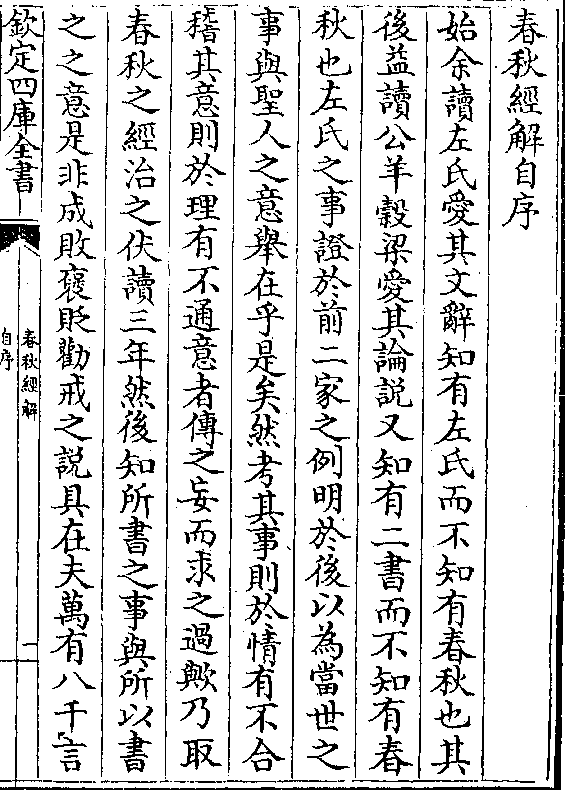 春秋經解自序
始余讀左氏愛其文辭知有左氏而不知有春秋也其
後益讀公羊穀梁愛其論說又知有二書而不知有春
秋也左氏之事證於前二家之例明於後以為當世之
事與聖人之意舉在乎是矣然考其事則於情有不合
稽其意則於理有不通意者傳之妄而求之過歟乃取
春秋之經治之伏讀三年然後知所書之事與所以書
之之意是非成敗褒貶勸戒之說具在夫萬有八千言
欽定四庫全書
春秋經解
自序
一